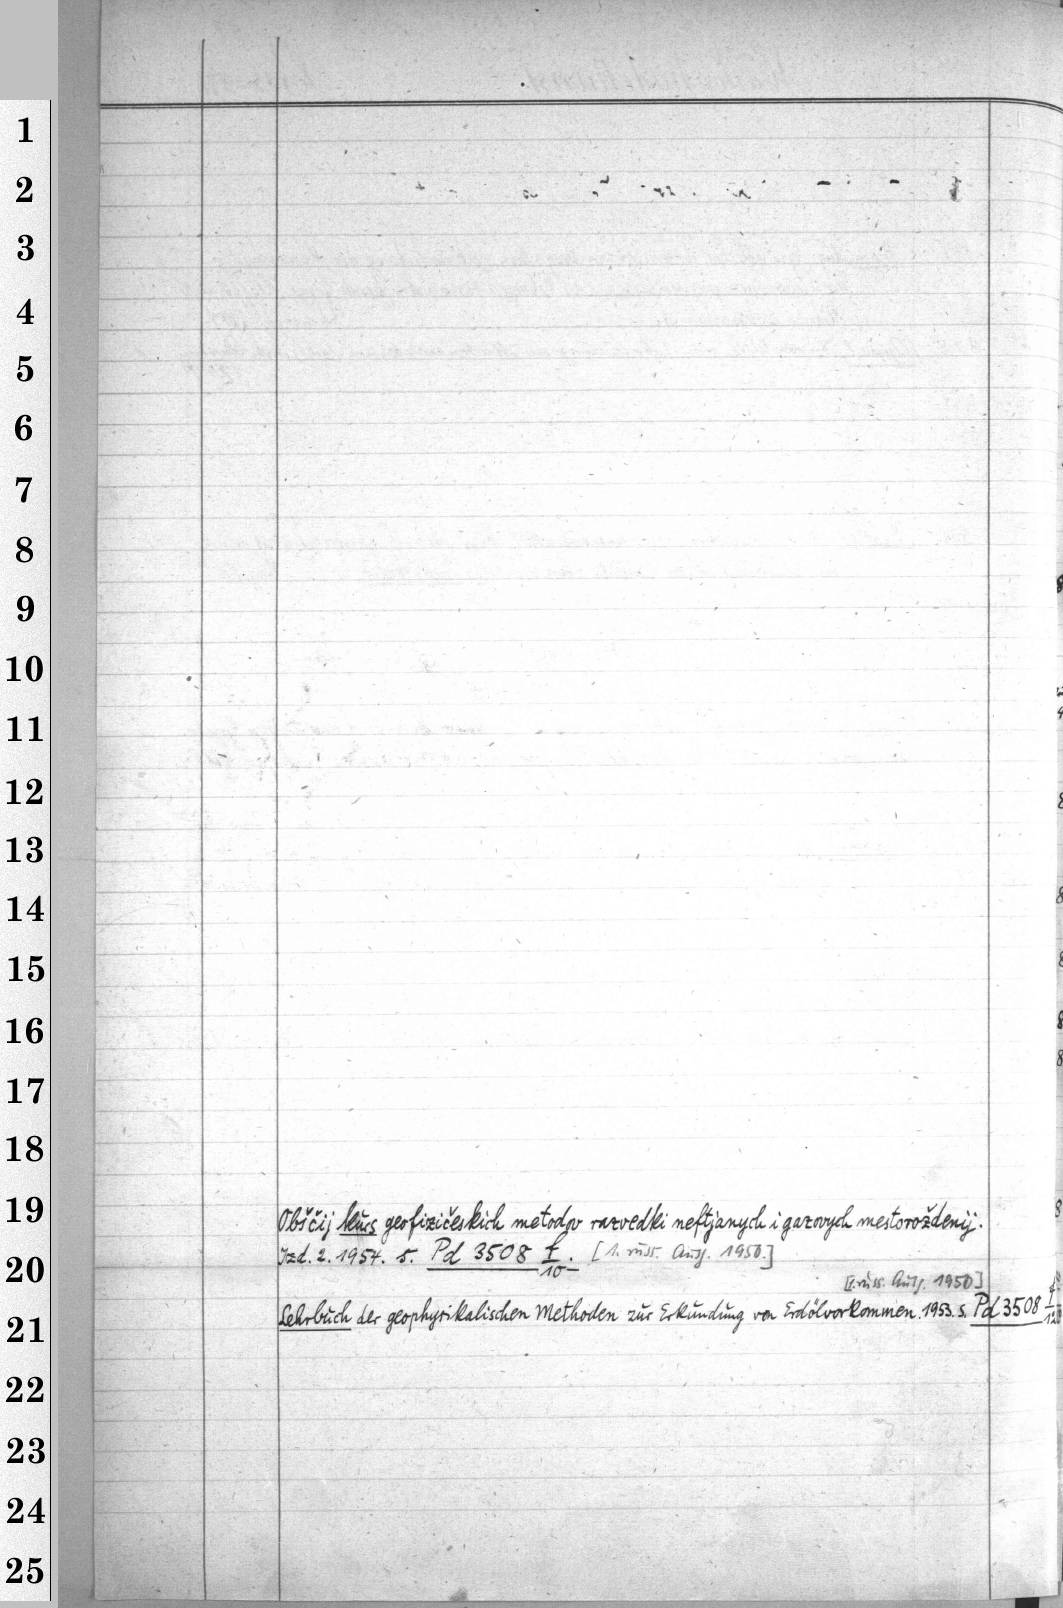 1
2
3
4
5
6
7
8
9
10
11
12
13
14
15
16
17
18
19
20
21
22
23
24
25
Obščij kurs geofizičeskich metodov razvedki neftjanych i gazovych mestoroždenij.
Izd. 2. 1954. s. Pd 3508 f/10. [1. russ. Ausg. 1950.]
[1. russ. Ausg. 1950]
Lehrbuch der geophysikalischen Methoden zur Erkundung von Erdölvorkommen. 1953. s. Pd 3508 f/12